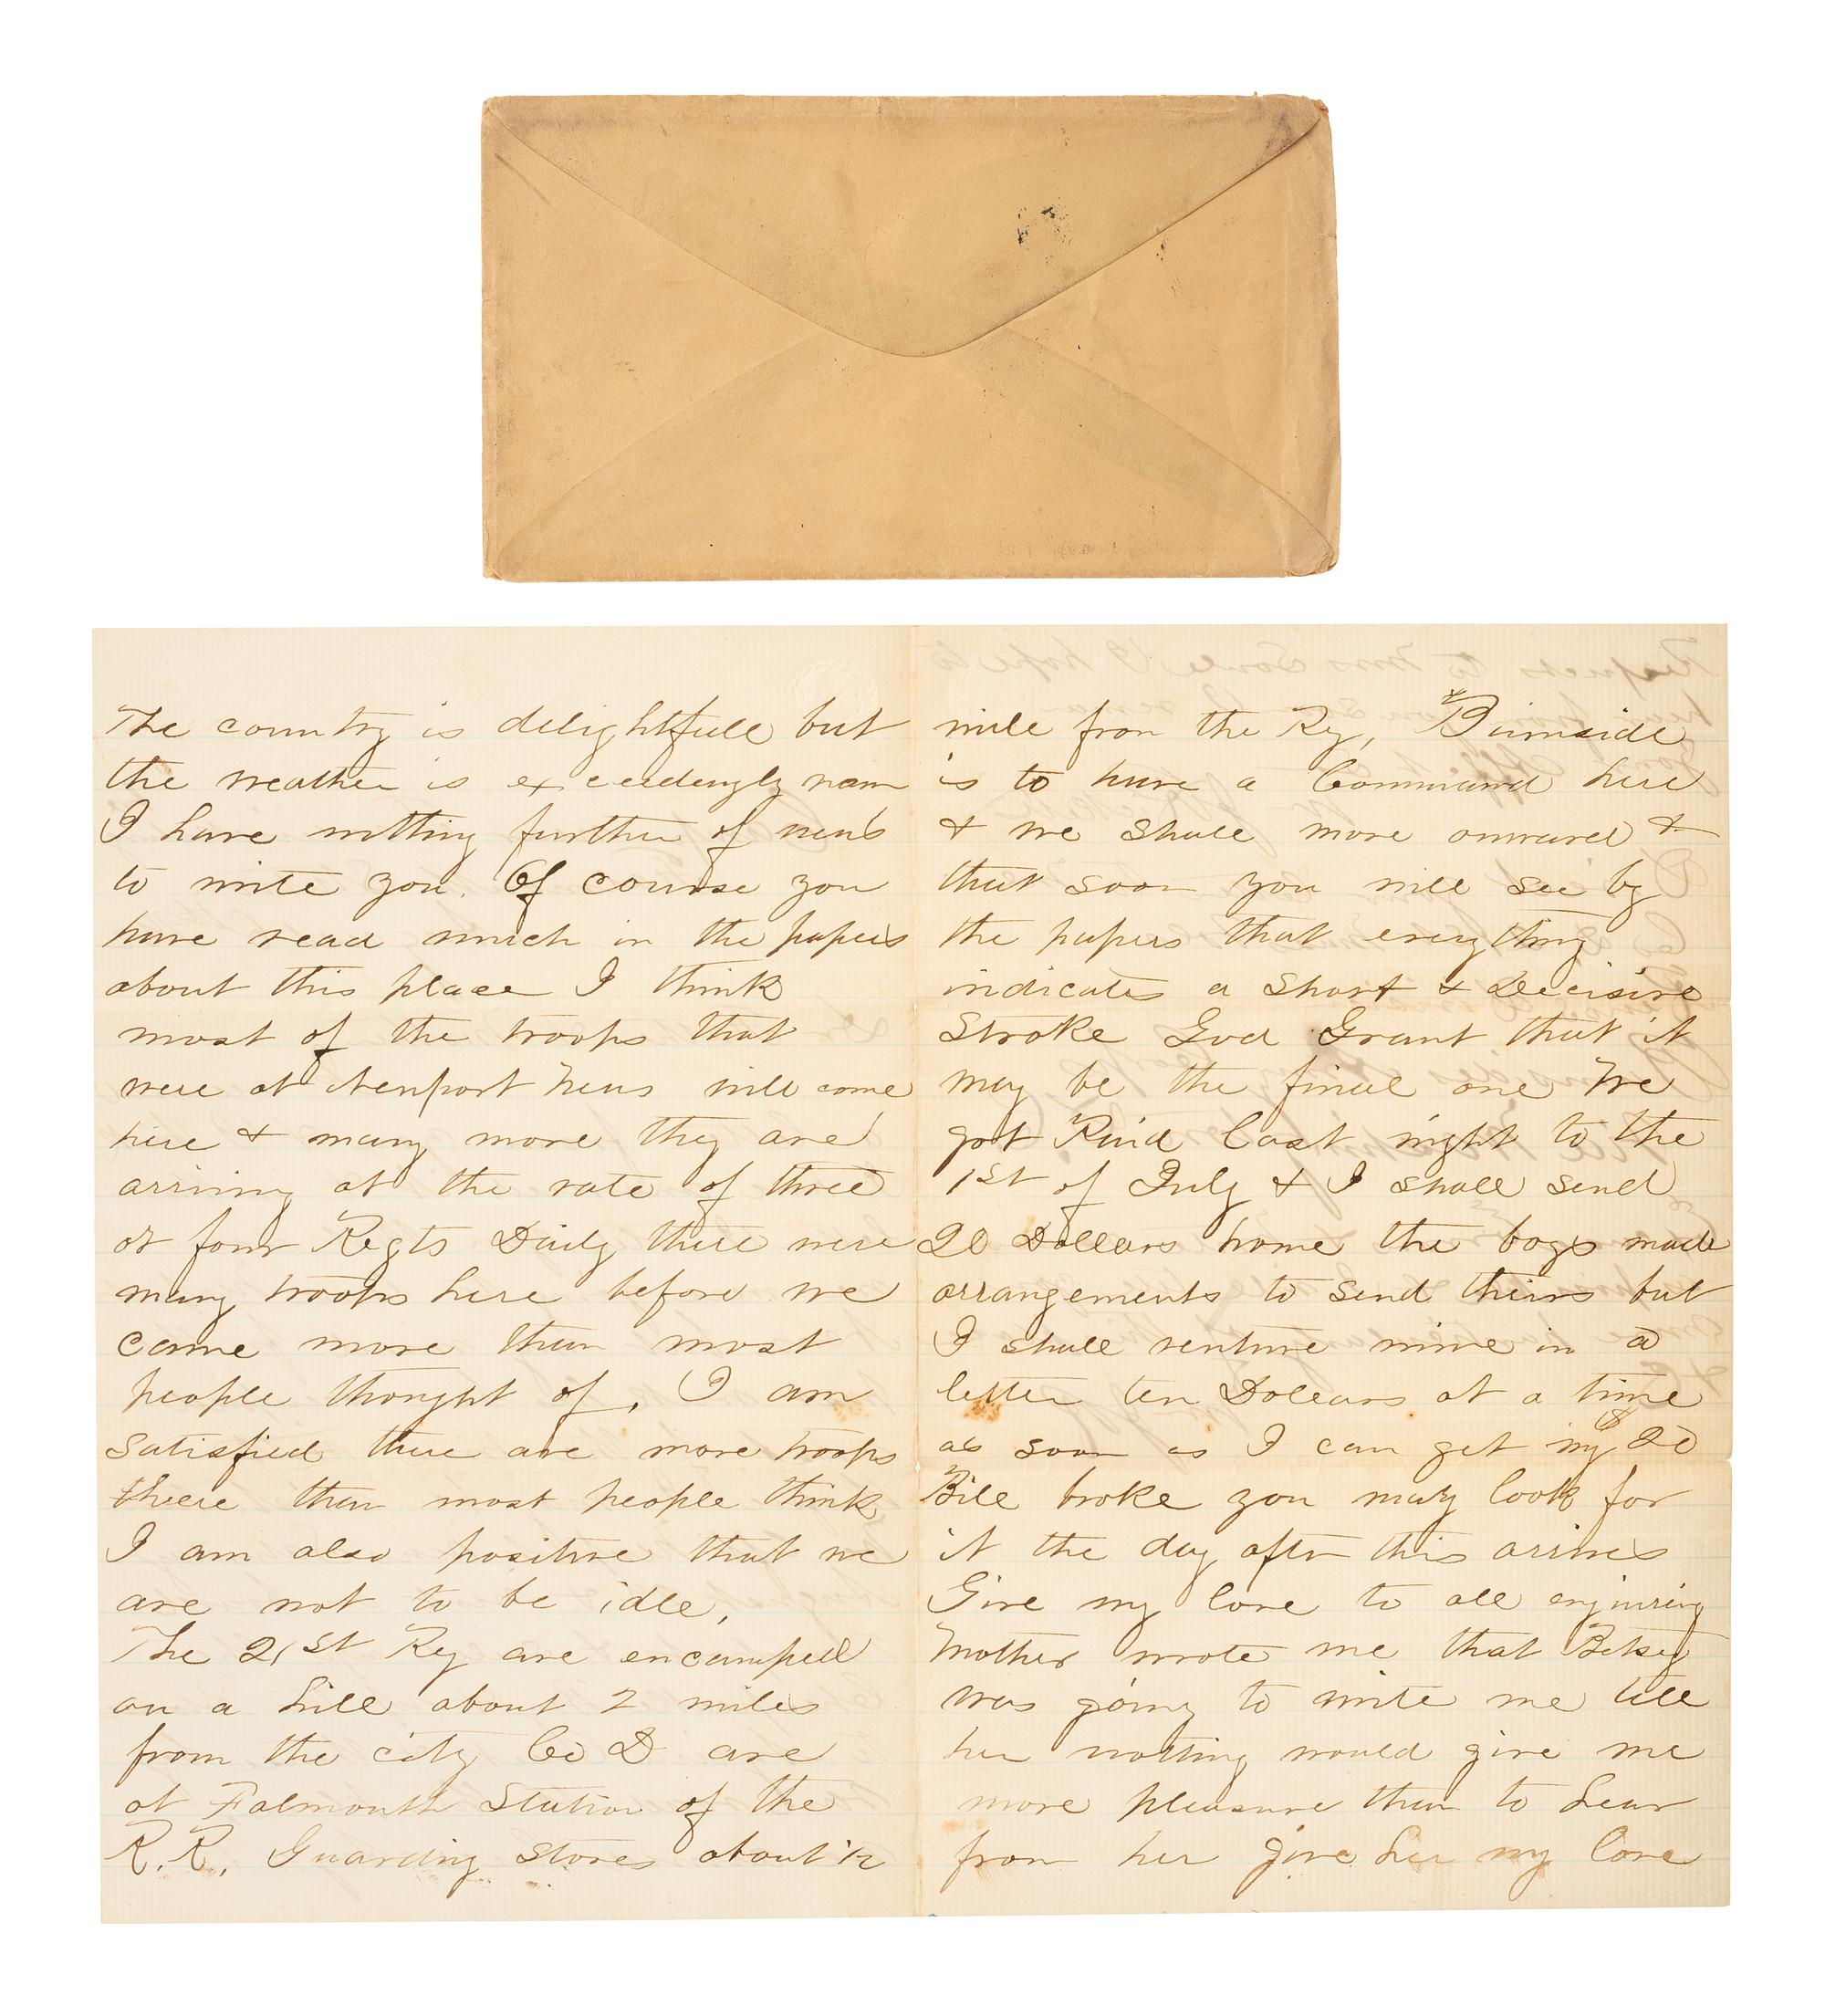 The country is delightfull but
the weather is exceedingly warm
I have nothing further of news
to write you. Of course you
have read much in the papers
about this place I think
most of the troops that
were at Newport News will come
here & many more they are
arriving at the rate of three
or four Regts Daily there were
many troops here before we
came more than most
people thought of, I am
satisfied there are more troops
there than most people think
I am also positive that we
are not to be idle,
The 21st Reg are encamped
on a hill about 2 miles
from the city Co D are
at Falmouth Station of the
R.R. Guarding stores about ½
mile from the Reg, Burnside
is to have a Command here
& we shall move onward &
that soon you will see by
the papers that everything
indicates a short & Decisive
Stroke God Grant that it
may be the final one We
got Paid last night to the
1st of July & I shall send
20 Dollars home the boys made
arrangements to send theirs but
I shall venture mine in a
letter ten Dollars at a time
as soon as I can get my $20
Bill broke you may look for
it the day after this arrives
Give my love to all enquiring
Mother wrote me that Betsey
was going to write me tell
her nothing would give me
more pleasure than to hear
from her give her my love